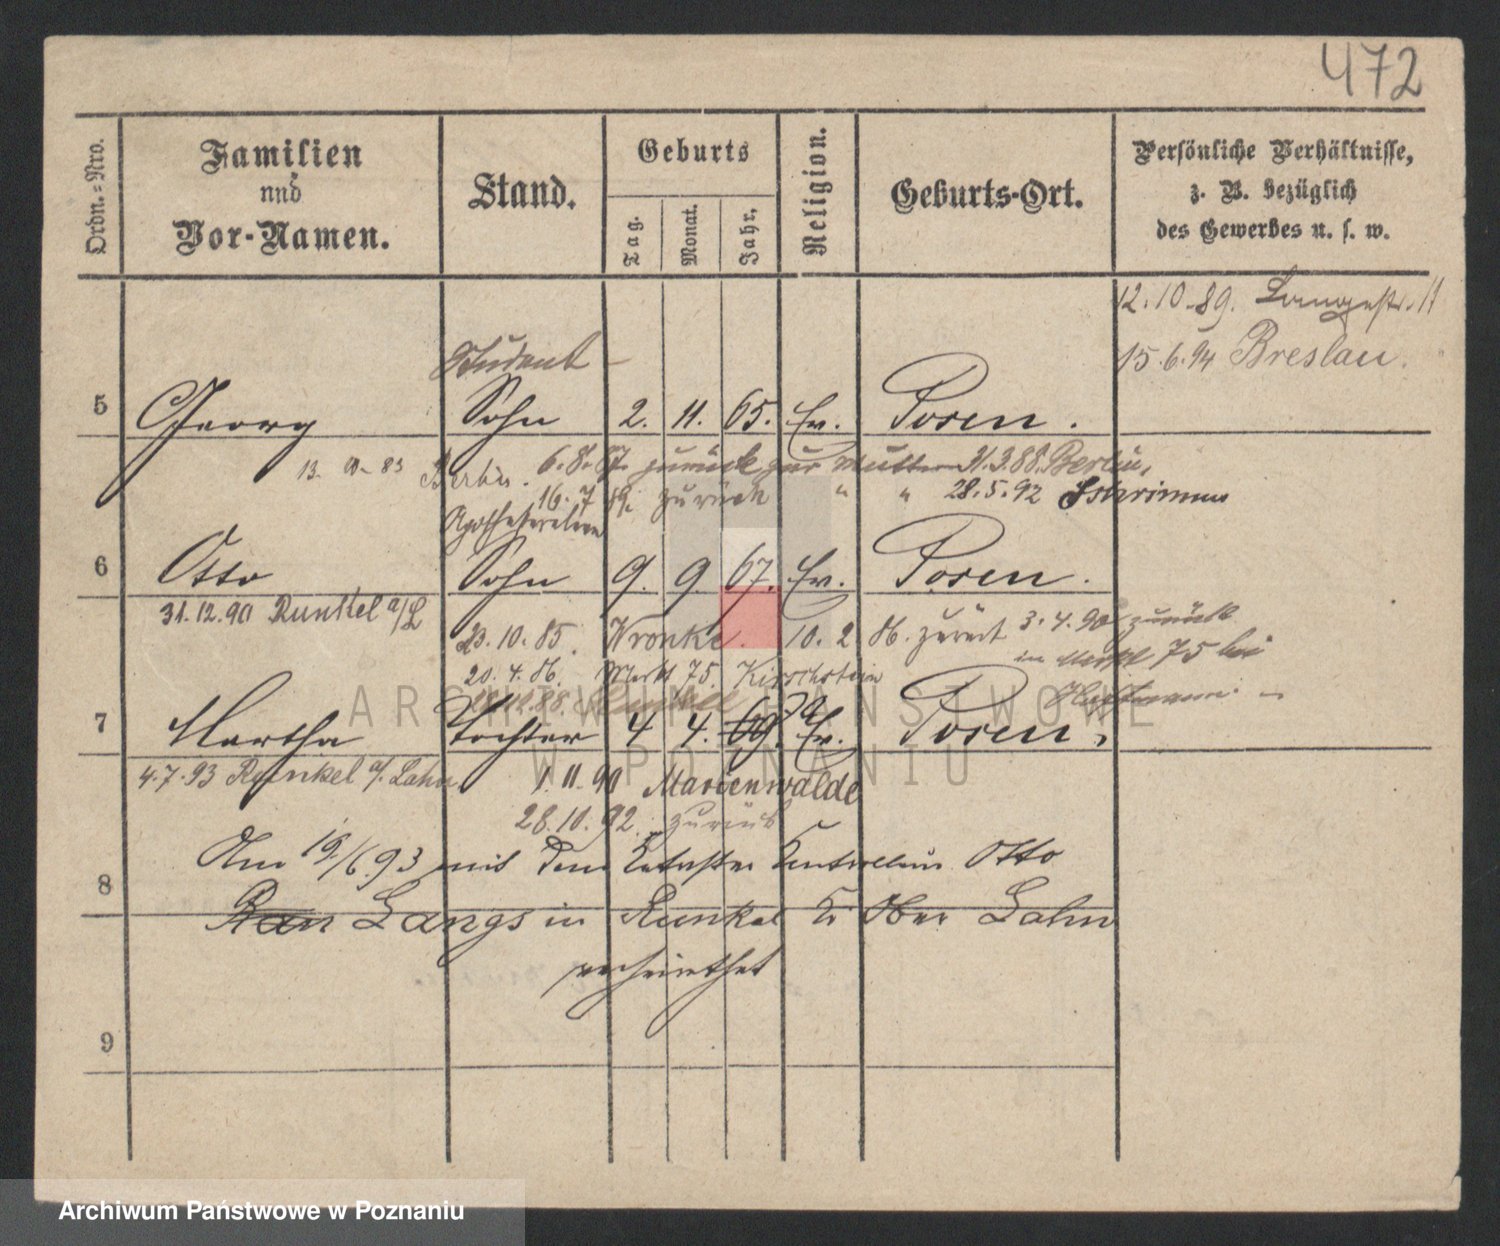 472
Ordn.=Nro.
Familien
und
Vor-Namen.
Stand.
Geburts
Tag.
Monat.
Jahr.
Religion.
Geburts-Ort.
Persönliche Verhältnisse,
z. B. bezüglich
des Gewerbes u. s. w.
12.10.89. Langestr. 11
15.6.94 Breslau.
Student
5 Georg Sohn 2. 11. 65. Ev. Posen.
Berlin. 6.8. zurück zur Mutter 31.3.88. Berlin,
16.7 89. zurück " " 28.5.92 Schrimm
6 Otto Sohn 9. 9. 67. Ev. Posen.
31.12.90 Runkel a/L
23.10.85. Wronke. 10.2 86. zurück 3.4.90 zurück
in Markt 75 bei
20.4.86. Markt 75. Kirschstein
7 Martha Tochter 4 4. 69. Ev. Posen.
4.7.93 Runkel a/. Lahn
1.11.90 Marienwalde
28.10.92. zurück
Am 19/6.93 mit dem Kataster Kontrolleur Otto
8
Langs in Runkel Kr Ober Lahn
verheirathet
9
ARCHIWUM PAŃSTWOWE
W POZNANIU
Archiwum Państwowe w Poznaniu